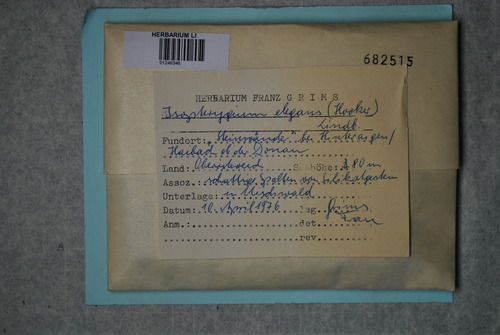 HERBARIUM LI
01246346
682515
HERBARIUM FRANZ GRIMS
Isopterygium elegans (Hooker)
Lindb.
Fundort: "Steinwände" bei Hinteraigen/
Haibach ob der Donau
Land: Oberösterreich Seehöhe: 480 m
Assoz. schattige Spalten von Silikatgestein
Unterlage: in Mischwald
Datum: 10. April 1976 leg. Grims
Anm.: det.
rev.